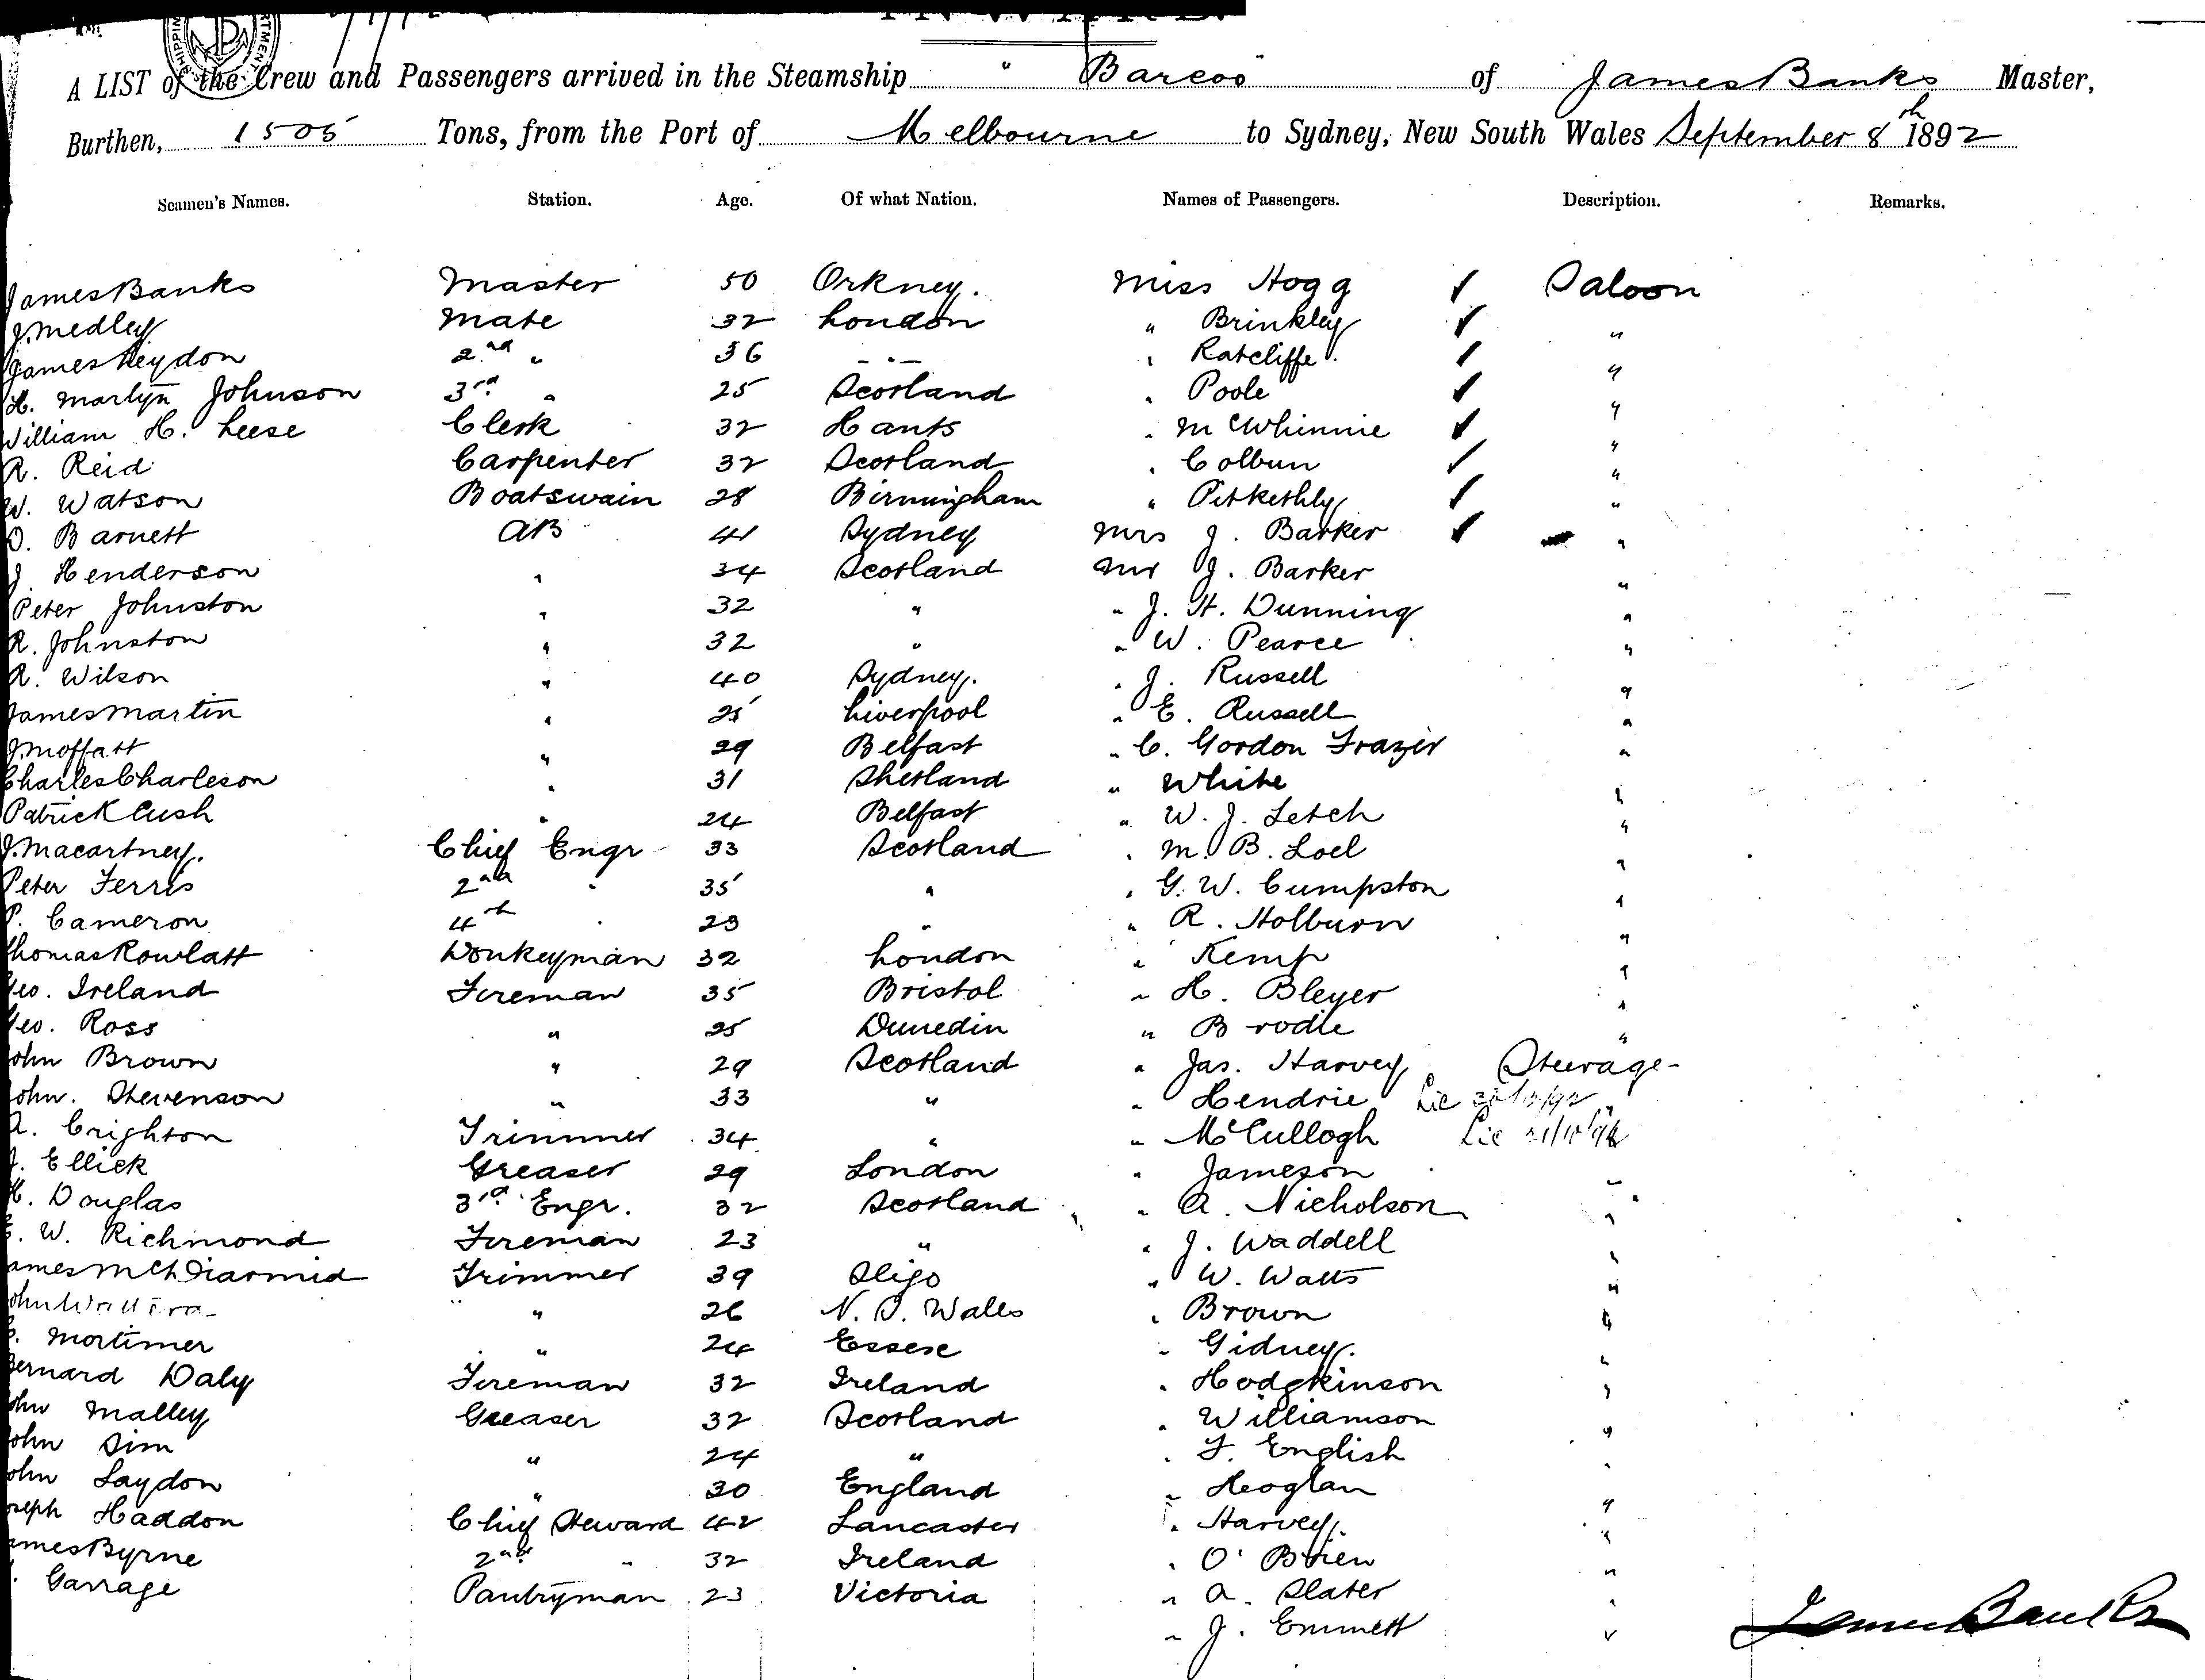 INWARD.
SHIPPING
A LIST of the Crew and Passengers arrived in the Steamship " Barcoo " of James Banks Master,
Burthen, 1505 Tons, from the Port of Melbourne to Sydney, New South Wales September 8th 1892
Seamen's Names. Station. Age. Of what Nation. Names of Passengers. Description. Remarks.
James Banks Master 50 Orkney. Miss Hogg ✓ Saloon
J. Medley Mate 32 London " Brinkley ✓ "
James Heydon 2nd " 36 - " - " Ratcliffe. ✓ "
H. Martyn Johnson 3rd " 25 Scotland " Poole ✓ "
William H. Leese Clerk 32 Hants " McWhinnie ✓ "
R. Reid Carpenter 32 Scotland " Colbun ✓ "
W. Watson Boatswain 28 Birmingham " Pitkethly ✓ "
O. Barnett AB 41 Sydney Mrs J. Barker ✓ "
J Henderson " 34 Scotland Mr J. Barker "
Peter Johnston " 32 " " J. H. Dunning "
R. Johnston " 32 " " W. Pearce "
R. Wilson " 40 Sydney. " J. Russell "
James Martin " 25 Liverpool " E. Russell "
J. Moffatt " 29 Belfast " C. Gordon Frazer "
Charles Charleson " 31 Shetland " White "
Patrick Cush " 24 Belfast " W. J. Letch "
J. Macartney. Chief Engr 33 Scotland " M. B. Loel "
Peter Ferris 2nd " 35 " " G. W. Cumpston "
P. Cameron 4th " 23 " " R. Holburn "
Thomas Rowlatt Donkeyman 32 London " Kemp "
Geo. Ireland Fireman 35 Bristol " H. Bleyer "
Geo. Ross " 25 Dunedin " Brodie "
John Brown " 29 Scotland " Jas. Harvey Steerage
John. Stevenson " 33 " " Hendrie Lic "
A. Crighton Trimmer 34 " " McCullogh Lic "
J. Ellick Greaser 29 London " Jameson "
H. Douglas 3rd Engr. 32 Scotland " A. Nicholson "
W. Richmond Fireman 23 " " J. Waddell "
James McDiarmid Trimmer 39 Sligo " W. Watts "
John " 26 N. S. Wales " Brown "
Mortimer " 24 Essex " Gidney. "
Bernard Daly Fireman 32 Ireland " Hodgkinson "
John Malley Greaser 32 Scotland " Williamson "
John Sim " 24 " " F. English "
John Laydon " 30 England " Hoglan "
Joseph Haddon Chief Steward 42 Lancaster " Harvey. "
James Byrne 2nd " 32 Ireland " O'Brien "
Garrage Pantryman 23 Victoria " A. Slater "
" J. Emmett "
James Banks